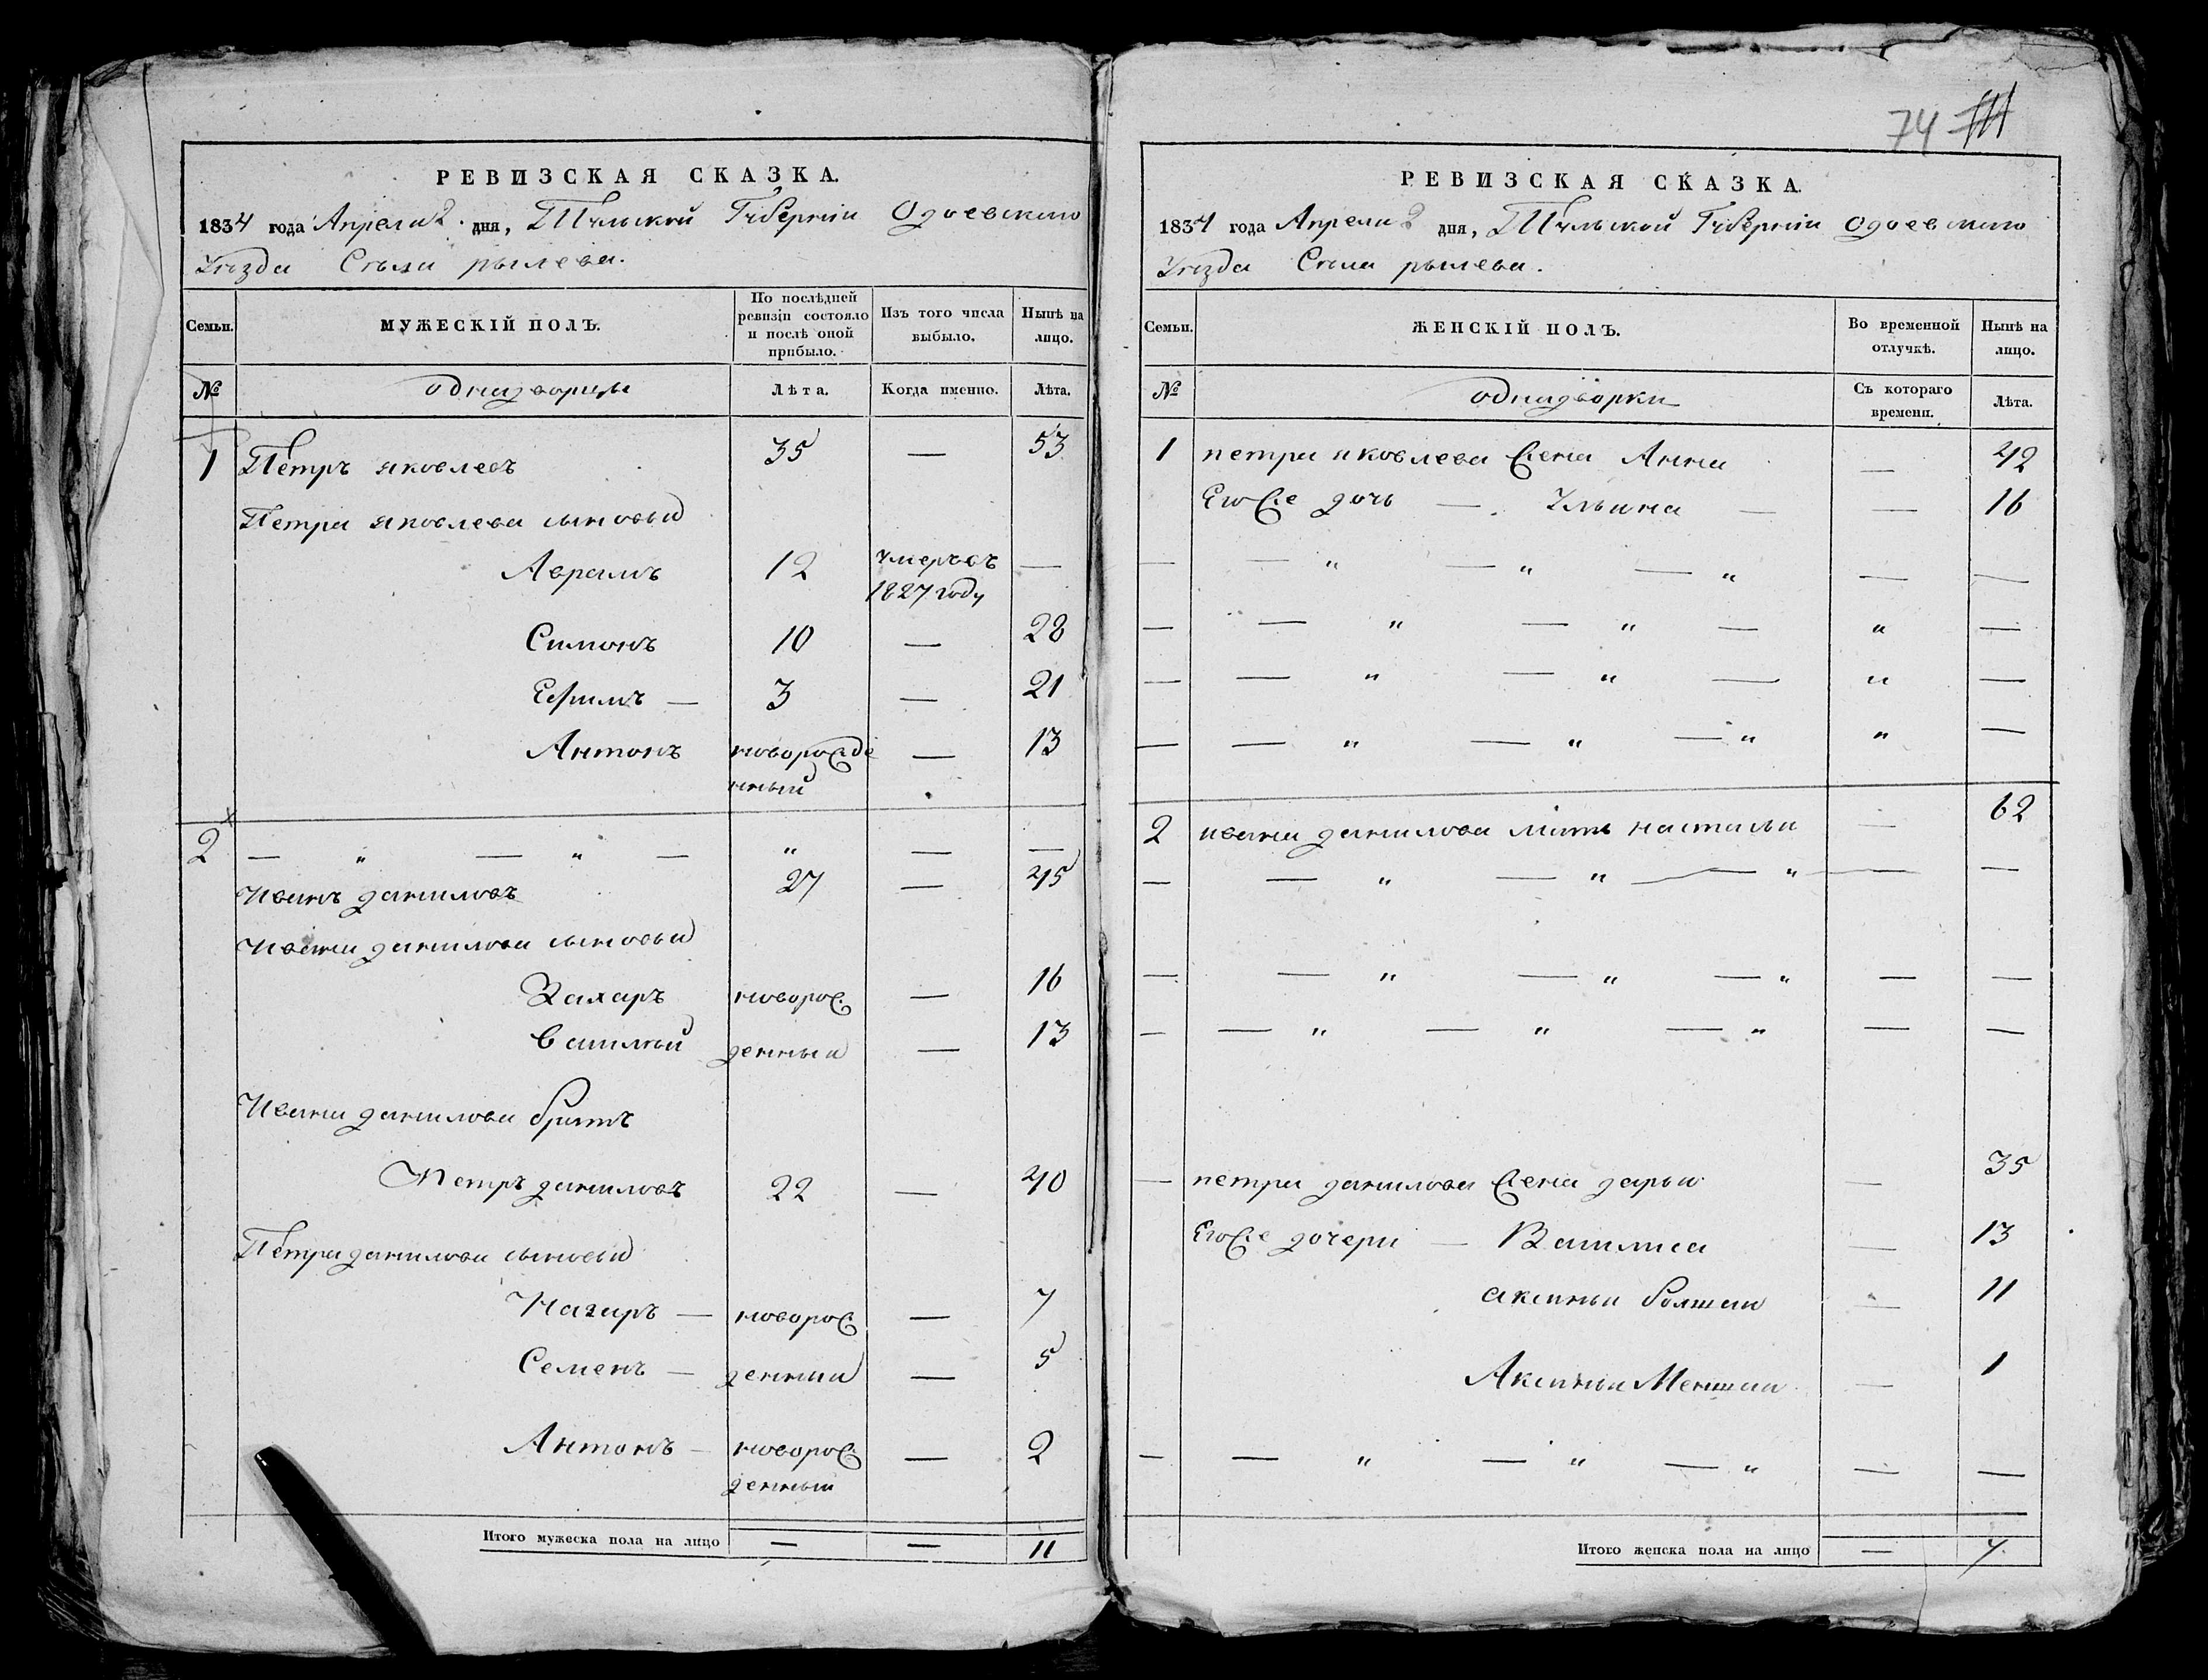 РЕВИЗСКАЯ СКАЗКА.
1834 года Апреля 2 дня, Тульской Губерніи Одоевского
Уезда Села рылева.
Семьи.
МУЖЕСКІЙ ПОЛЪ.
По послѣдней ревизіи состояло и послѣ оной прибыло.
Изъ того числа выбыло.
Нынѣ на лицо.
№
однадворцы
Лѣта.
Когда именно.
Лѣта.
1 Петръ яковлевъ 35 — 53
Петра яковлева сыновья
Аврамъ 12 умеръвъ —
1827 году
Симонъ 10 — 28
Ефимъ — 3 — 21
Антонъ новорожде — 13
нный
2 — " — " — " — —
Иванъ даниловъ 27 — 45
Ивана данилова сыновья
Захаръ новорож — 16
Василий денныя — 13
Ивана данилова братъ
Петръ даниловъ 22 — 40
Петра данилова сыновья
Назаръ — новорож — 7
Семенъ — денныи — 5
Антонъ — новорож — 2
денный
Итого мужеска пола на лицо — — 11
74
РЕВИЗСКАЯ СКАЗКА.
1834 года Апреля 2 дня, Тульской Губерніи Одоевского
Уезда Села рылева.
Семьи.
ЖЕНСКІЙ ПОЛЪ.
Во временной отлучкѣ.
Нынѣ на лицо.
№
однадворки
Съ котораго времени.
Лѣта.
1 петра яковлева жена Анна — 42
Егоже дочь — Ульяна — — 16
— — " — " — " — —
— — " — " — " —
— — " — " — " —
— — " — " — " " —
2 ивана данилова мать насталья — 62
— — " — " — " — —
— — " — " — " — —
— — " — " — " — —
— петра данилова жена дарья — 35
Егоже дочери — Василиса — 13
аксинья болшая — 11
Аксинья Меншая — 1
— — " — " — " — —
Итого женска пола на лицо — 7